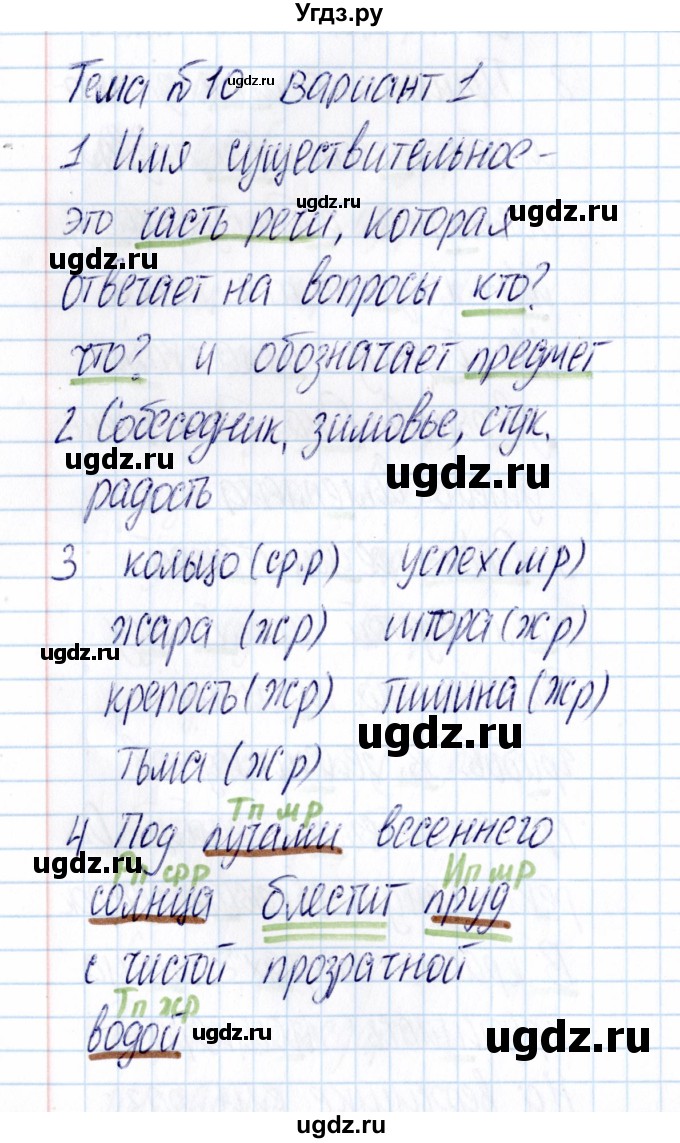 Угдз.ру
Тема №10 вариант 1
1 Имя существительное -
это часть речи, которая
отвечает на вопросы кто?
что? и обозначает предмет
2 Собеседник, зимовье, стук,
радость
3 кольцо (ср.р) успех (мр)
жара (жр) штора (жр)
крепость (жр) тишина (жр)
тьма (жр)
Тп мр
4 Под лучами весеннего
Рп срр Ип мр
солнца блестит пруд
с чистой прозрачной
Тп жр
водой
ugdz.ru
ugdz.ru
ugdz.ru
ugdz.ru
ugdz.ru
ugdz.ru
ugdz.ru
ugdz.ru
ugdz.ru
ugdz.ru
ugdz.ru
ugdz.ru